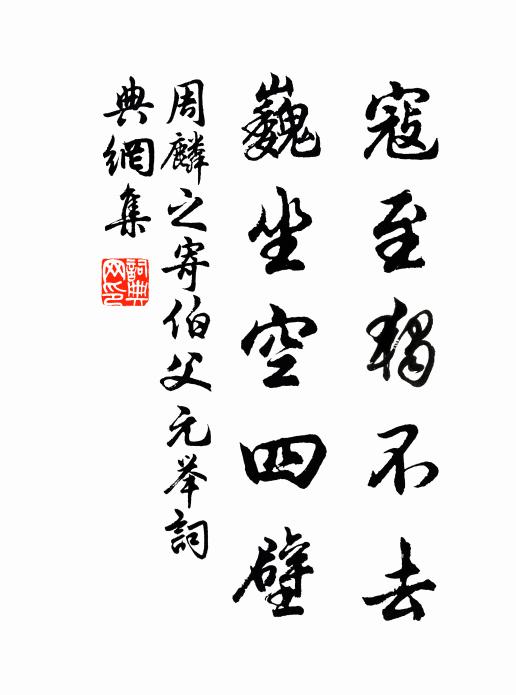 寇至独不去
巍坐空四壁
周麟之寄伯父元举詞
典網集
詞典网印